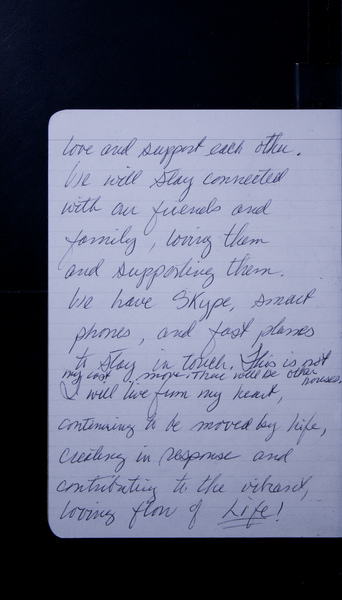 love and support each other.
We will stay connected
with our friends and
family, loving them
and supporting them.
We have Skype, smart
phones, and fast planes
to stay in touch. This is not
my last move. There will be other houses.
I will live from my heart,
continuing to be moved by life,
creating in response and
contributing to the vibrant,
loving flow of Life!